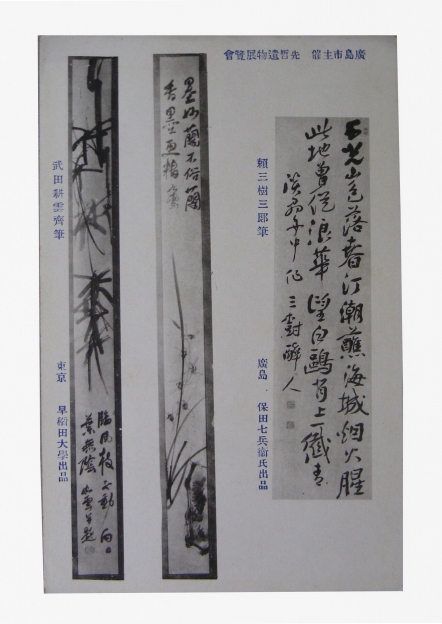 廣島市主催 先哲遺物展覽會
山色落春汀潮蘸海城烟火腥
此地曾從浪華望白鷗背上一纖青
舟中作 三樹醉人
賴三樹三郎筆
廣島 保田七兵衞氏出品
墨妙蘭不俗蘭
香墨更
臨風枝不動向日
葉無陰
武田耕雲齊筆
東京 早稻田大學出品